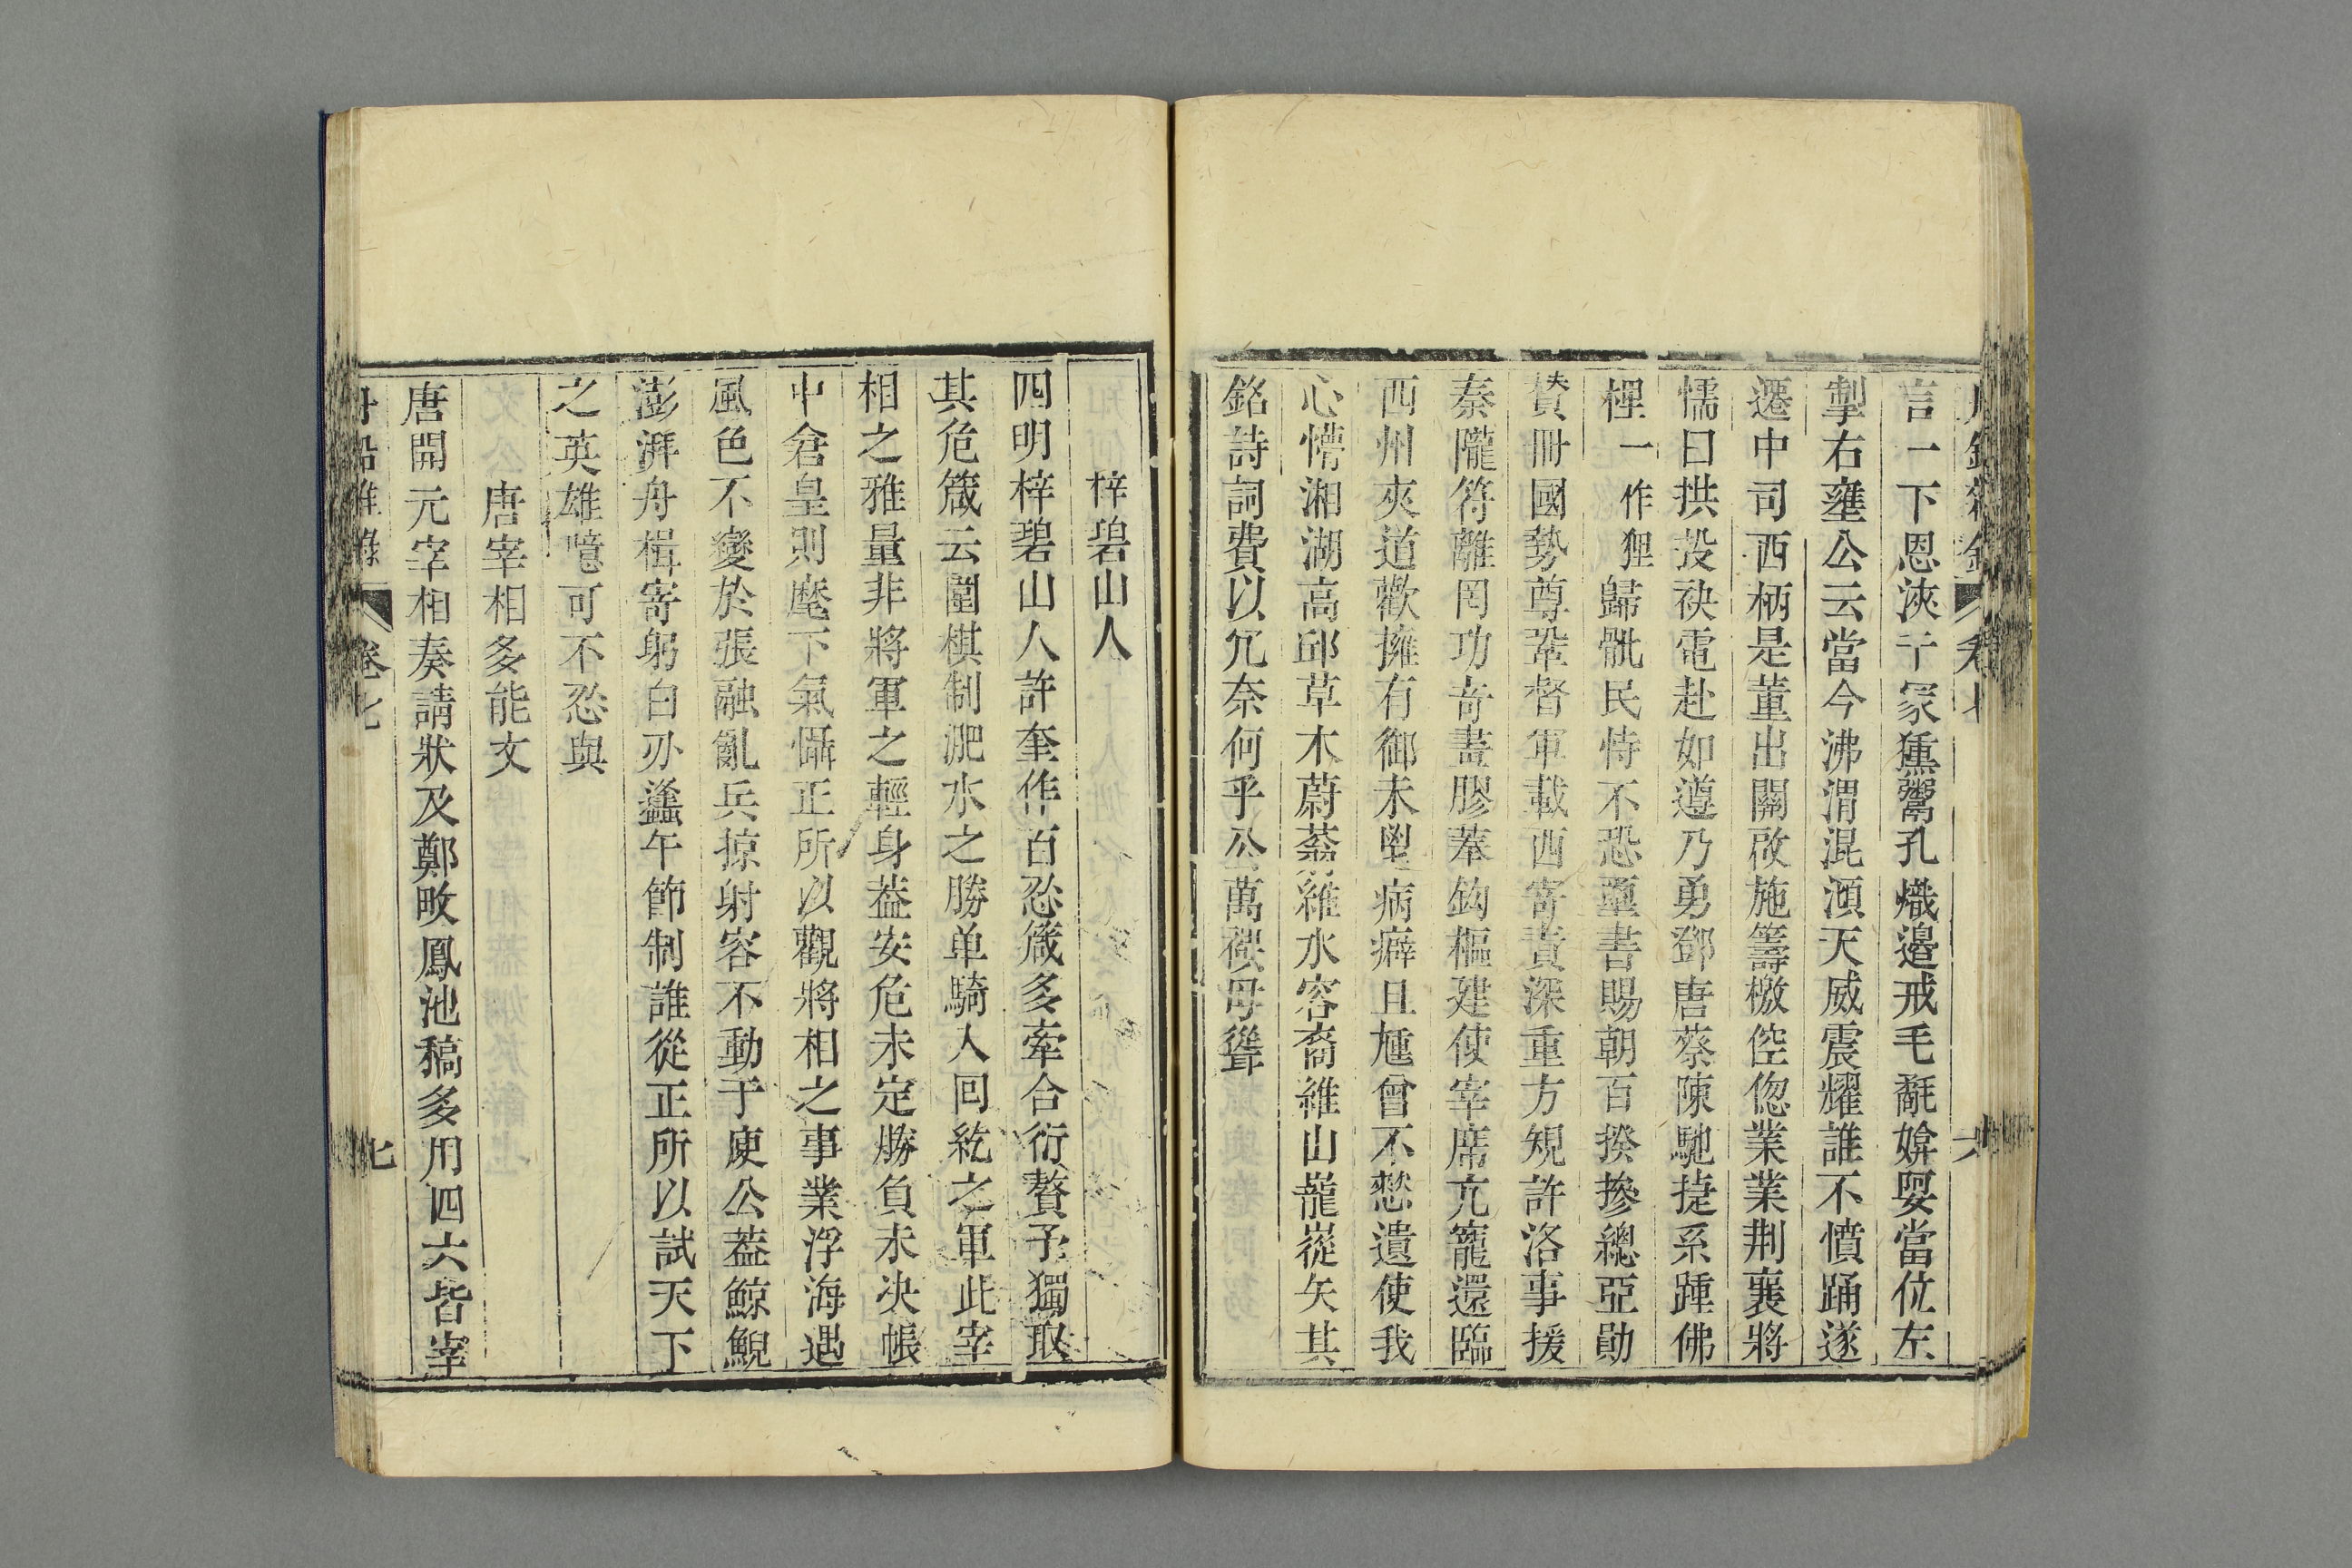 言一下恩浹于冢獯鬻孔熾邉戒毛氄媕娿當位左
掣右壅公云當今沸渭混澒天威震耀誰不憤踊遂
遷中司西柄是董出關啟施籌檄倥偬業業荆襄將
懦曰拱投袂電赴如遵乃勇鄧唐蔡陳馳捷系踵佛
狸一作狸歸骴民恃不恐璽書賜朝百揆摻總亞勛
贊冊國勢尊鞏督軍載西寄責深重方規許洛事援
秦隴符離罔功奇畫膠葢鈎樞建使宰席亢寵還臨
西州夾道歡擁有御未鬯病癖且尰曾不慭遺使我
心懵湘湖高邱草木蔚蓊維水容裔維山巃嵸矢其
銘詩詞費以冗奈何乎公萬禩毋聳
卷七
六
梓碧山人
四明梓碧山人許奎作百忍箴多牽合衍贅予獨取
其危箴云圍棋制淝水之勝单騎入囘紇之軍此宰
相之雅量非將軍之輕身葢安危未定勝負未决帳
中倉皇則麾下氣懾正所以觀將相之事業浮海遇
風色不變於張融亂兵掠射容不動于庾公葢鯨鯢
澎湃舟楫寄躬白刅蠭午節制誰從正所以試天下
之英雄噫可不忍與
唐宰相多能文
唐開元宰相奏請狀及鄭畋鳳池稿多用四六皆宰
丹鉛雜錄
卷七
七